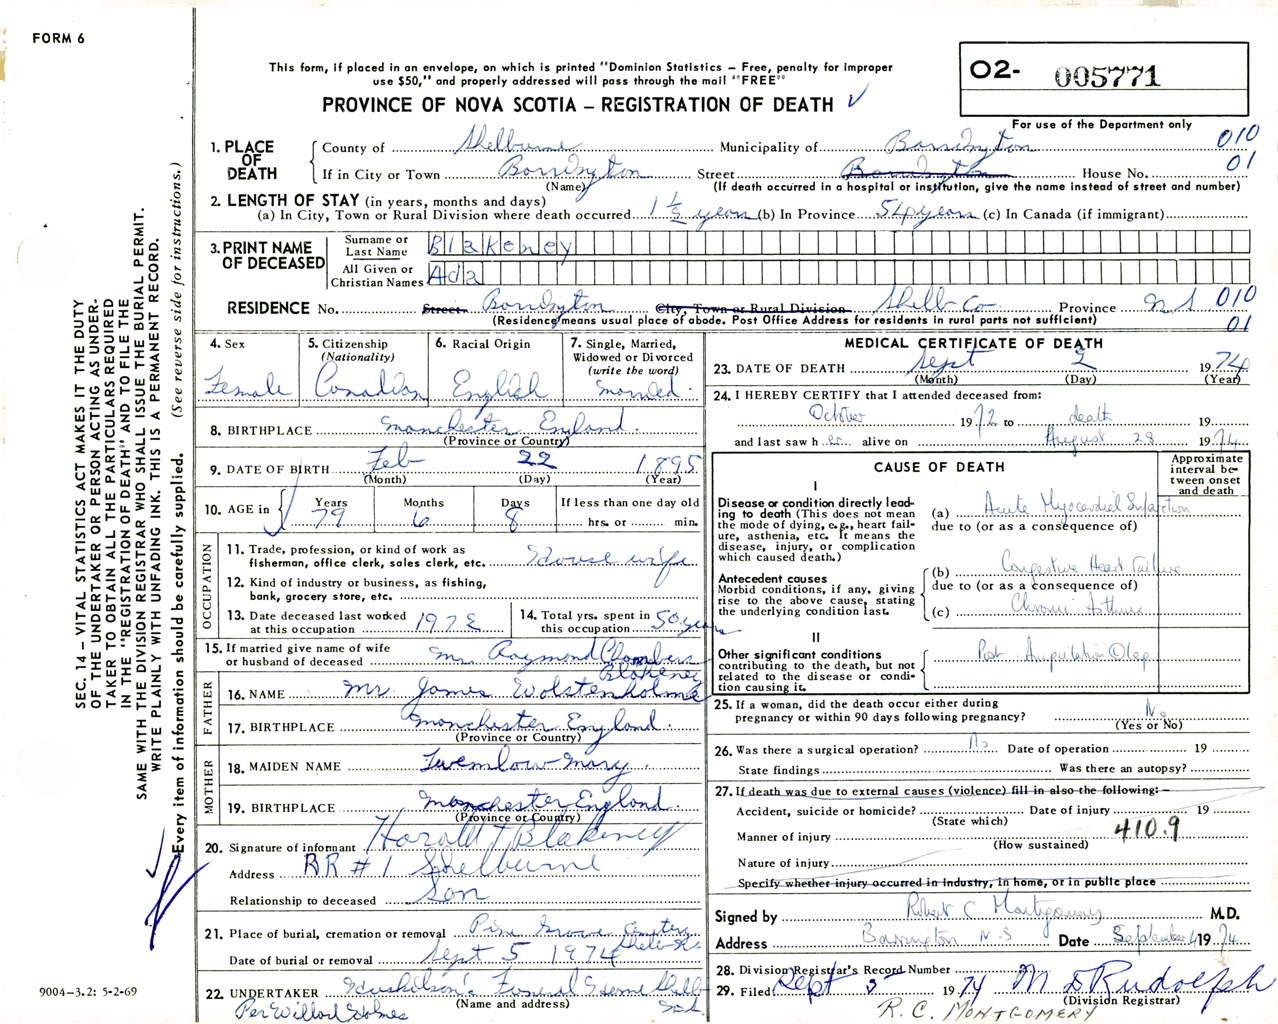 FORM 6
This form, if placed in an envelope, on which is printed "Dominion Statistics – Free, penalty for improper
use $50," and properly addressed will pass through the mail "FREE"
PROVINCE OF NOVA SCOTIA – REGISTRATION OF DEATH ✓
02- 005771
For use of the Department only
SEC. 14 – VITAL STATISTICS ACT MAKES IT THE DUTY
OF THE UNDERTAKER OR PERSON ACTING AS UNDER-
TAKER TO OBTAIN ALL THE PARTICULARS REQUIRED
IN THE "REGISTRATION OF DEATH" AND TO FILE THE
SAME WITH THE DIVISION REGISTRAR WHO SHALL ISSUE THE BURIAL PERMIT.
WRITE PLAINLY WITH UNFADING INK. THIS IS A PERMANENT RECORD.
Every item of information should be carefully supplied. (See reverse side for instructions.)
1. PLACE OF DEATH
County of Shelburne Municipality of Barrington 010
If in City or Town Barrington Street Barrington House No. 01
(Name) (If death occurred in a hospital or institution, give the name instead of street and number)
2. LENGTH OF STAY (in years, months and days)
(a) In City, Town or Rural Division where death occurred 1 ½ years (b) In Province 54 years (c) In Canada (if immigrant)
3. PRINT NAME OF DECEASED
Surname or Last Name Blakeney
All Given or Christian Names Ada
RESIDENCE No. Street Barrington City, Town or Rural Division Shelb Co Province N S 010
(Residence means usual place of abode. Post Office Address for residents in rural parts not sufficient) 01
4. Sex
Female
5. Citizenship
(Nationality)
Canadian
6. Racial Origin
English
7. Single, Married,
Widowed or Divorced
(write the word)
Married
8. BIRTHPLACE Manchester England.
(Province or Country)
9. DATE OF BIRTH Feb 22 1895
(Month) (Day) (Year)
10. AGE in Years Months Days If less than one day old
79 6 8 hrs. or min.
OCCUPATION
11. Trade, profession, or kind of work as
fisherman, office clerk, sales clerk, etc. House wife
12. Kind of industry or business, as fishing,
bank, grocery store, etc.
13. Date deceased last worked
at this occupation 1972
14. Total yrs. spent in
this occupation 50 years
15. If married give name of wife
or husband of deceased Mr. Raymond Chambers
Blakeney
FATHER
16. NAME Mr. James Wolstenholme
17. BIRTHPLACE Manchester England.
(Province or Country)
MOTHER
18. MAIDEN NAME Twemlow Mary
19. BIRTHPLACE Manchester England.
(Province or Country)
20. Signature of informant Harold T Blakeney
Address RR # 1 Shelburne
Relationship to deceased Son
21. Place of burial, cremation or removal Pine Grove Cemetery
Date of burial or removal Sept 5 1974
22. UNDERTAKER Funeral Home Shelb
(Name and address)
Per Willard
MEDICAL CERTIFICATE OF DEATH
23. DATE OF DEATH Sept 2 1974
(Month) (Day) (Year)
24. I HEREBY CERTIFY that I attended deceased from:
October 1972 to death 19
and last saw her alive on August 28 1974
CAUSE OF DEATH
Approximate
interval be-
tween onset
and death
I
Disease or condition directly lead-
ing to death (This does not mean
the mode of dying, e.g., heart fail-
ure, asthenia, etc. It means the
disease, injury, or complication
which caused death.)
(a) Acute Myocardial Infarction
due to (or as a consequence of)
Antecedent causes
Morbid conditions, if any, giving
rise to the above cause, stating
the underlying condition last.
(b) Congestive Heart Failure
due to (or as a consequence of)
(c) Chronic Asthma
II
Other significant conditions
contributing to the death, but not
related to the disease or condi-
tion causing it.
Post Amputation Ⓛ leg
25. If a woman, did the death occur either during
pregnancy or within 90 days following pregnancy? No
(Yes or No)
26. Was there a surgical operation? No Date of operation 19
State findings Was there an autopsy?
27. If death was due to external causes (violence) fill in also the following:–
Accident, suicide or homicide? Date of injury 19
(State which)
Manner of injury 410.9
(How sustained)
Nature of injury
Specify whether injury occurred in Industry, in home, or in public place
Signed by Robert C Montgomery M.D.
Address Barrington N.S Date September 4 1974
28. Division Registrar's Record Number
29. Filed Sept 5 1974 M D Rudolph
(Division Registrar)
R. C. MONTGOMERY
9004–3.2: 5-2-69